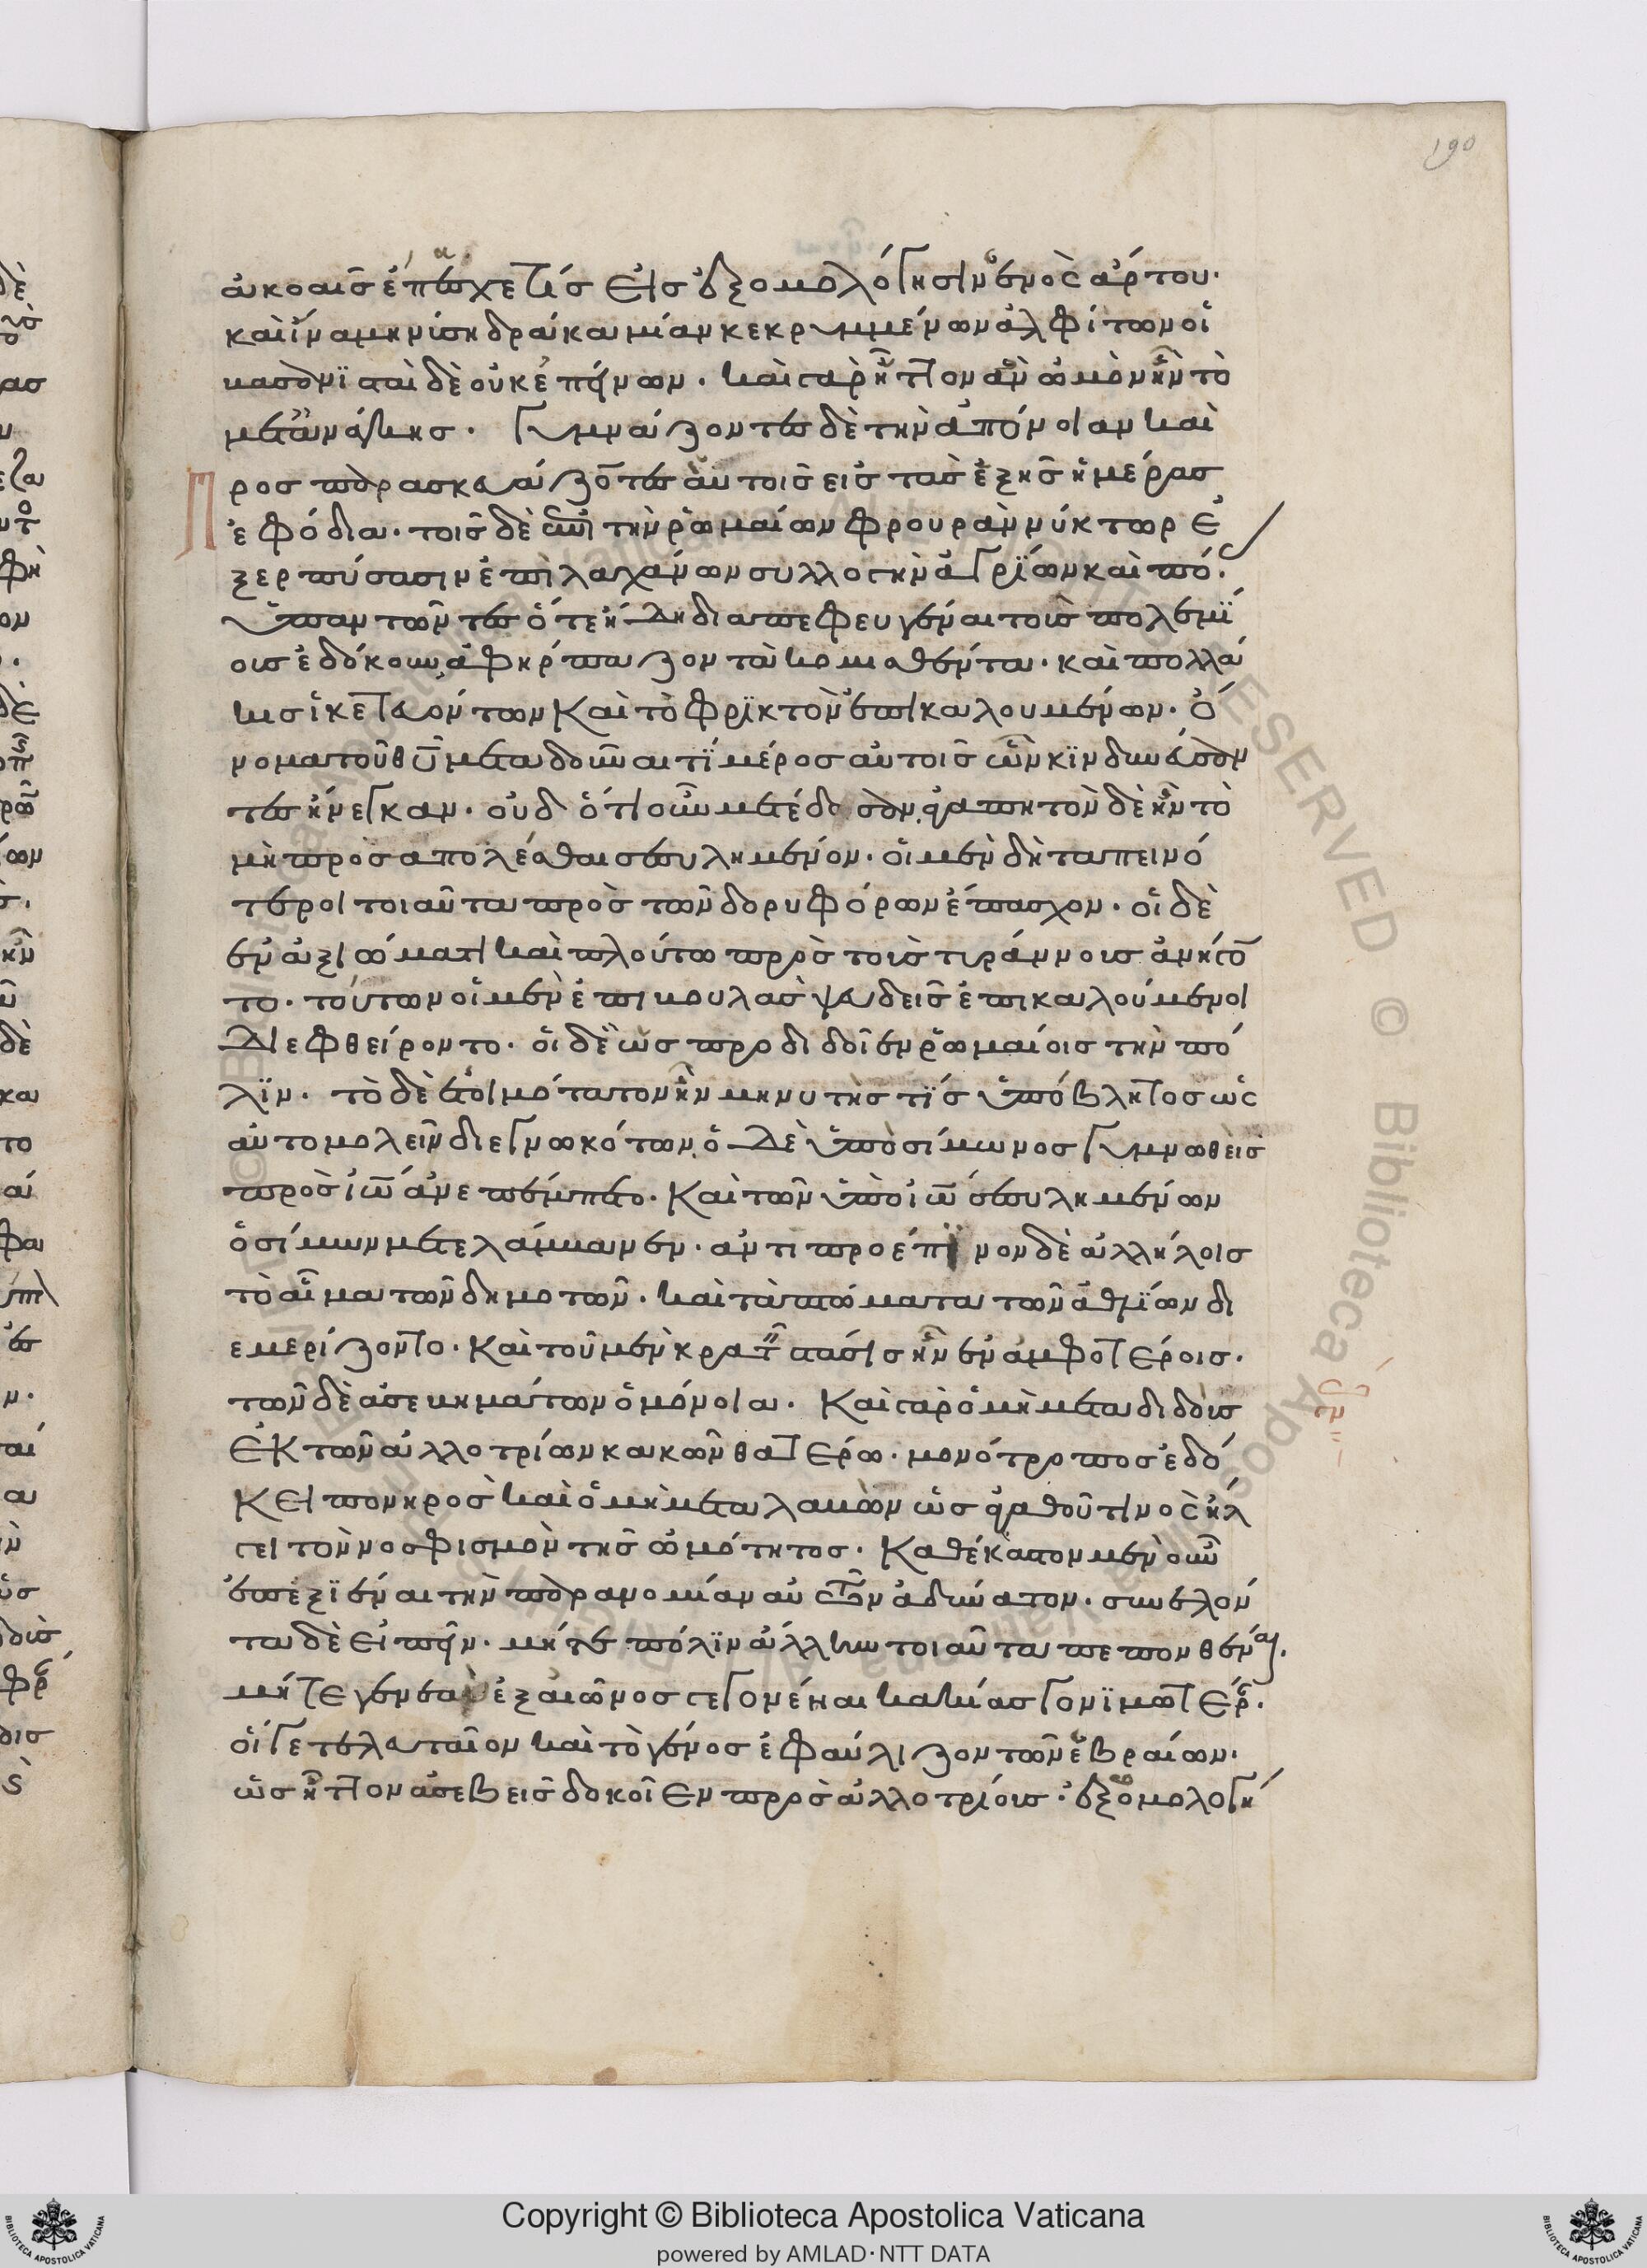 ἀκοαῖς ἔπασχέ τις εἰς ἐξομολόγησιν ἑνὸς ἄρτου·
καὶ ἵνα μηνύση δράκα μίαν κεκρυμμένων ἀλφίτων οἱ
βασανισταὶ δὲ οὐκ ἐπείνων. καὶ γὰρ ἧττον ἂν ὠμὸν ἦν τὸ
μετ' ἀνάγκης. Γυμνάζοντες δὲ τὴν ἀπόνοιαν καὶ
προς παρασκευάζοντες αὐτοῖς εἰς τὰς ἑξῆς ἡμέρας
ἐφόδια. τοῖς δὲ ἐπὶ τὴν ῥωμαίων φρουρὰν νύκτωρ ἐ
ξερπύσασιν ἐπὶ λαχάνων συλλογὴν ἀγρίων καὶ πό.
ὑπαντῶντες ὅτε ἤδη διαπεφευγέναι τοὺς πολεμί
ους ἐδόκουν, ἀφήρπαζον τὰ κομισθέντα. καὶ πολλά
κις ἱκετευόντων καὶ τὸ φρικτὸν ἐπικαλουμένων. ὄ
νομα τοῦ θυ μεταδοῦναι τί μέρος αὐτοῖς ὧν κινδυνεύσαν
τες ἤνεγκαν. οὐδ ὁτιοῦν μετέδοσαν, ἀγαπητὸν δὲ ἦν τὸ
μὴ προσαπολέσθαι σεσυλημένον. οἱ μὲν δὴ ταπεινό
τεροι τοιαῦτα πρὸς τῶν δορυφόρων ἔπασχον. οἱ δὲ
ἐν ἀξιώματι καὶ πλούτω πρὸς τοὺς τυράννους ἀνήγον
το. τούτων οἱ μὲν ἐπιβουλὰς ψευδεῖς ἐπικαλούμενοι
διεφθείροντο. οἱ δὲ ὡς προδιδοῖεν ῥωμαίοις τὴν πό
λιν. τὸ δὲ ἑτοιμότατον ἦν μηνυτής τις ὑπόβλητος ὡς
αὐτομολεῖν διεγνωκότων, ὁ δὲ ὑπὸ σίμωνος γυμνωθεὶς
πρὸς ἰω ἀνεπέμπετο. καὶ τῶν ὑπὸ ἰω σεσυλημένων
ὁ σίμων μετελάμβανεν. ἀντιπροέπινον δὲ ἀλλήλοις
τὸ αἷμα τῶν δημοτῶν. καὶ τὰ πτώματα τῶν ἀθλίων δι
εμερίζοντο. καὶ τοῦ μὲν κρατεῖν στάσις ἦν ἐν ἀμφοτέροις.
τῶν δὲ ἀσεβημάτων ὁμόνοια. καὶ γὰρ ὁ μὴ μεταδιδοὺς
ἐκ τῶν ἀλλοτρίων κακῶν θατέρω. μονότροπος ἐδό
κει πονηρὸς καὶ ὁ μὴ μεταλαβὼν ὡς ἀγαθοῦ τινὸς ἤλ
γει τὸν νοσφισμὸν τῆς ὠμότητος. καθέκαστον μὲν οὖν
ἐπεξιέναι τὴν παρανομίαν αὐτῶν ἀδύνατον. συνελόν
τα δὲ εἰπεῖν. μήτε πόλιν ἄλλην τοιαῦτα πεπονθέναι.
μήτε γενεὰν ἐξ αἰῶνος γεγονέναι κακίας γονιμωτέρ.
οἵ γε τελευταῖον καὶ τὸ γένος ἐφαύλιζον τῶν ἑβραίων.
ὡς ἧττον ἀσεβεῖς δοκοῖεν πρὸς ἀλλοτρίους. ἐξομολογή
190
Copyright © Biblioteca Apostolica Vaticana
powered by AMLAD·NTT DATA